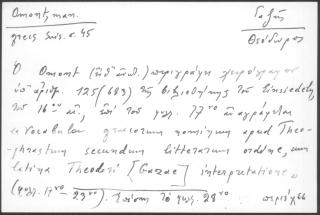 Omont, man.
Γαζῆς
grecs Suis. σ. 45
Θεόδωρος
Ὁ Omont περιγράφει χειρόγραφον
ὑπ' ἀριθμ. 125 (683) τῆς βιβλιοθήκης τοῦ Einsiedeln
τοῦ 16ου αἰ., τοῦ φυλ. 17ου ἀναγράφεται
«Vocabula graecorum nominum apud Theo-
phrastum secundum litterarum ordine, cum
latina Theodori [Gazae] interpretatione»
(φυλλ. 17νο - 29νο). τὸ φυλ. 28νο